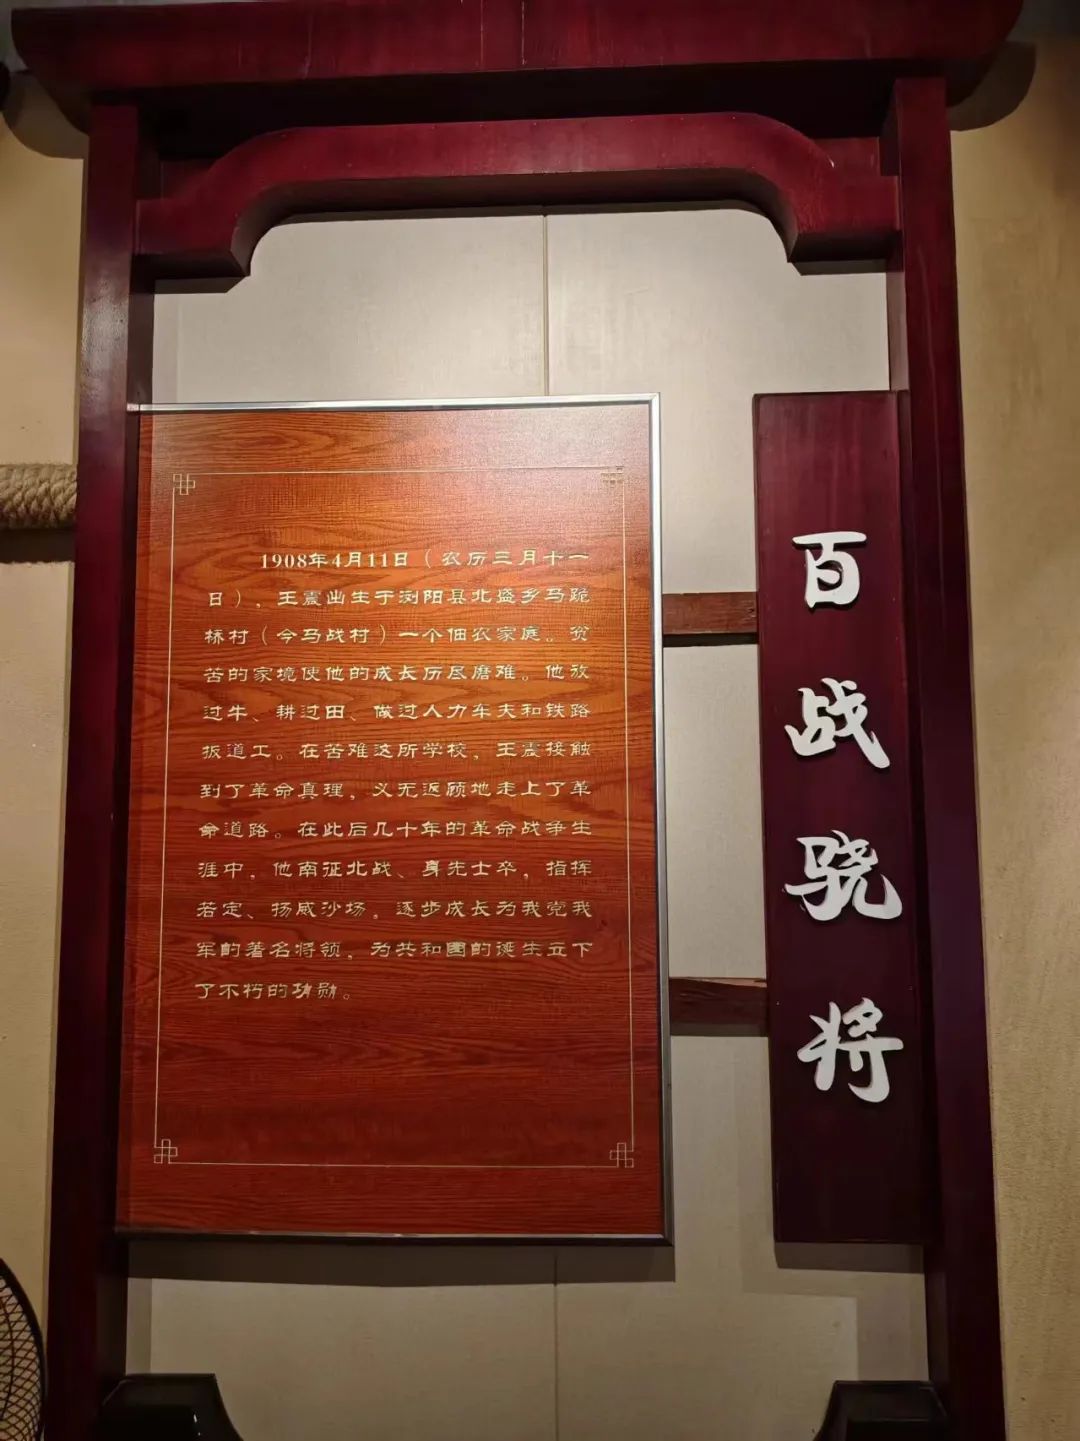 1908年4月11日（农历三月十一
日），王震出生于浏阳县北盛乡马跪
桥村（今马战村）一个佃农家庭。贫
苦的家境使他的成长历尽磨难。他放
过牛、耕过田、做过人力车夫和铁路
扳道工。在苦难这所学校，王震接触
到了革命真理，义无返顾地走上了革
命道路。在此后几十年的革命战争生
涯中，他南征北战、身先士卒，指挥
若定、扬威沙场，逐步成长为我党我
军的著名将领，为共和国的诞生立下
了不朽的功勋。
百战骁将